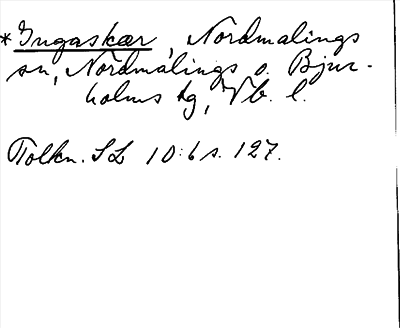 *Ingaskær, Nordmalings
sn, Nordmalings o. Bjur-
holms tg, Vb. l.
Tolkn. SL 10:6 s. 127.